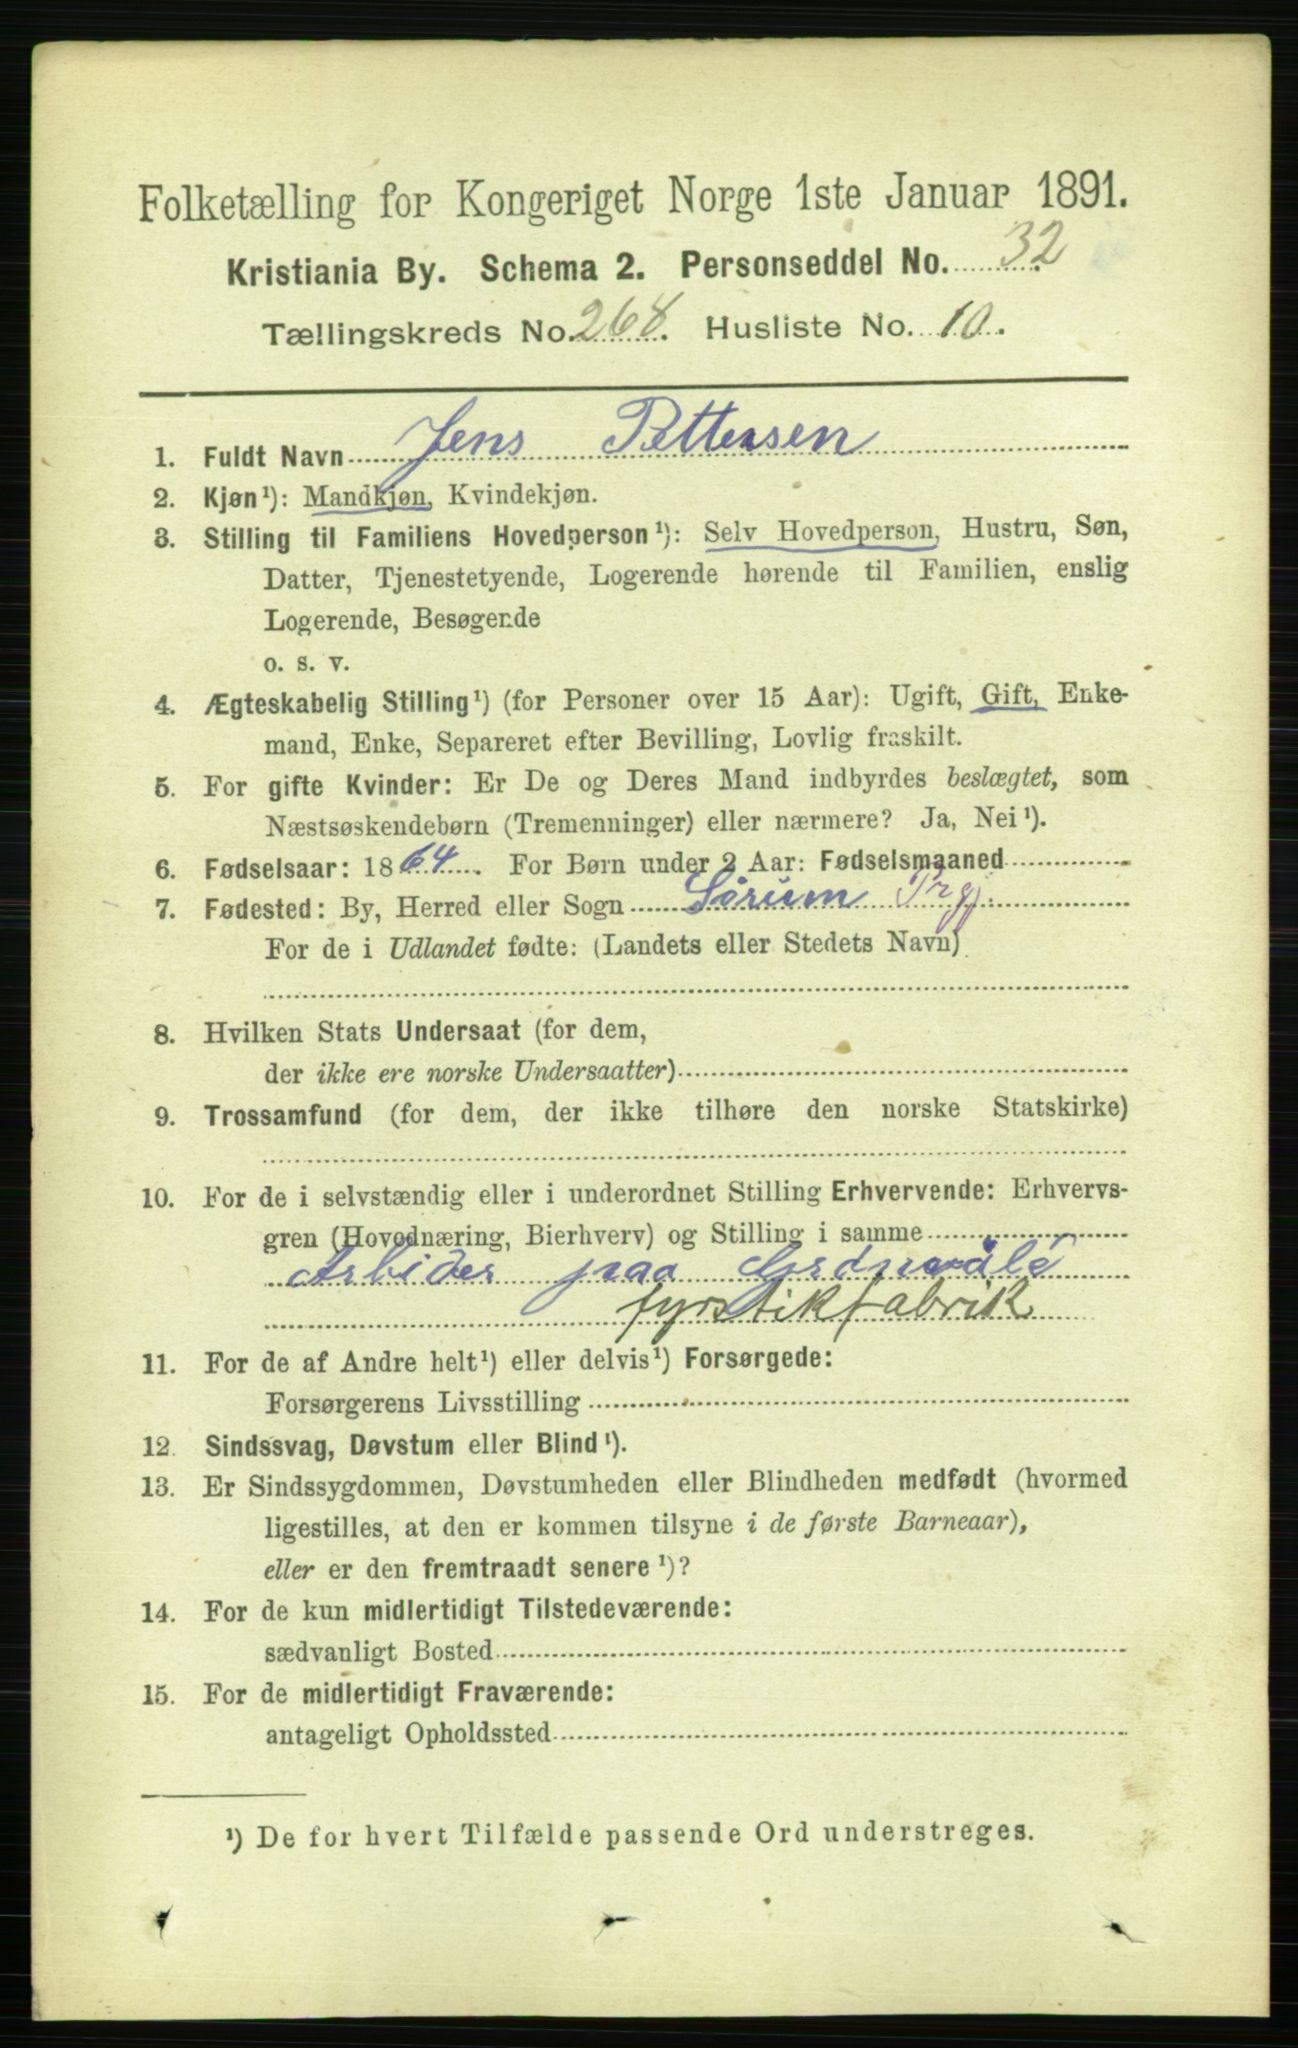 Folketælling for Kongeriget Norge 1ste Januar 1891.
Kristiania By. Schema 2. Personseddel No. 32
Tællingskreds No. 268. Husliste No. 10.
1. Fuldt Navn Jens Pettersen
2. Kjøn¹): Mandkjøn, Kvindekjøn.
3. Stilling til Familiens Hovedperson¹): Selv Hovedperson, Hustru, Søn,
Datter, Tjenestetyende, Logerende hørende til Familien, enslig
Logerende, Besøgende
o. s. v.
4. Ægteskabelig Stilling¹) (for Personer over 15 Aar): Ugift, Gift, Enke-
mand, Enke, Separeret efter Bevilling, Lovlig fraskilt.
5. For gifte Kvinder: Er De og Deres Mand indbyrdes beslægtet, som
Næstsøskendebørn (Tremenninger) eller nærmere? Ja, Nei¹).
6. Fødselsaar: 1864. For Børn under 2 Aar: Fødselsmaaned
7. Fødested: By, Herred eller Sogn Sørum Prgj.
For de i Udlandet fødte: (Landets eller Stedets Navn)
8. Hvilken Stats Undersaat (for dem,
der ikke ere norske Undersaatter)
9. Trossamfund (for dem, der ikke tilhøre den norske Statskirke)
10. For de i selvstændig eller i underordnet Stilling Erhvervende: Erhvervs-
gren (Hovednæring, Bierhverv) og Stilling i samme
Arbider paa
fyrstikfabrik
11. For de af Andre helt¹) eller delvis¹) Forsørgede:
Forsørgerens Livsstilling
12. Sindssvag, Døvstum eller Blind¹).
13. Er Sindssygdommen, Døvstumheden eller Blindheden medfødt (hvormed
ligestilles, at den er kommen tilsyne i de første Barneaar),
eller er den fremtraadt senere¹)?
14. For de kun midlertidigt Tilstedeværende:
sædvanligt Bosted
15. For de midlertidigt Fraværende:
antageligt Opholdssted
¹) De for hvert Tilfælde passende Ord understreges.